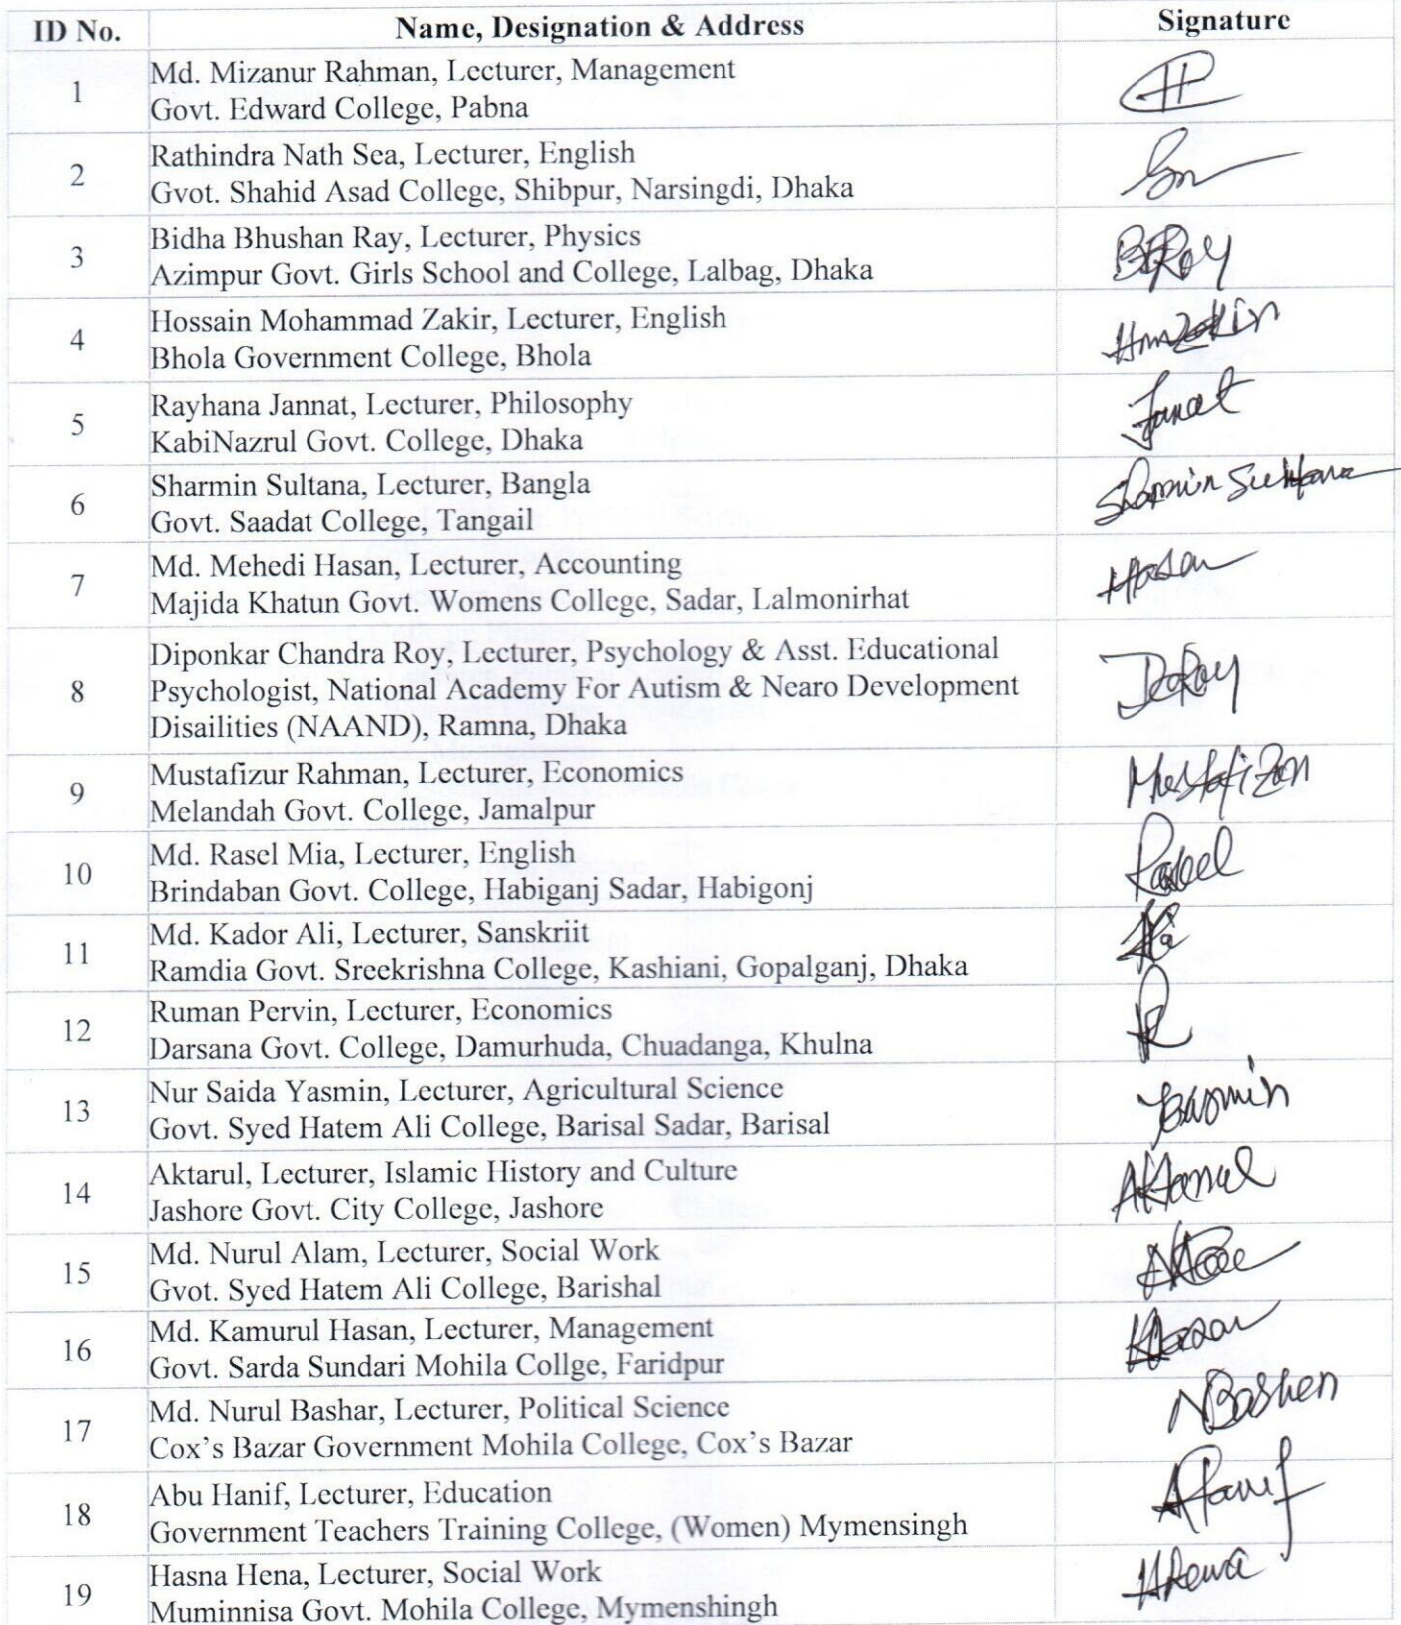 ID No. Name, Designation & Address Signature
1 Md. Mizanur Rahman, Lecturer, Management
Govt. Edward College, Pabna
2 Rathindra Nath Sea, Lecturer, English
Gvot. Shahid Asad College, Shibpur, Narsingdi, Dhaka
3 Bidha Bhushan Ray, Lecturer, Physics BRoy
Azimpur Govt. Girls School and College, Lalbag, Dhaka
4 Hossain Mohammad Zakir, Lecturer, English
Bhola Government College, Bhola
5 Rayhana Jannat, Lecturer, Philosophy
KabiNazrul Govt. College, Dhaka
6 Sharmin Sultana, Lecturer, Bangla
Govt. Saadat College, Tangail
7 Md. Mehedi Hasan, Lecturer, Accounting Hasan
Majida Khatun Govt. Womens College, Sadar, Lalmonirhat
8 Diponkar Chandra Roy, Lecturer, Psychology & Asst. Educational
Psychologist, National Academy For Autism & Nearo Development
Disailities (NAAND), Ramna, Dhaka
9 Mustafizur Rahman, Lecturer, Economics
Melandah Govt. College, Jamalpur
10 Md. Rasel Mia, Lecturer, English
Brindaban Govt. College, Habiganj Sadar, Habigonj
11 Md. Kador Ali, Lecturer, Sanskriit
Ramdia Govt. Sreekrishna College, Kashiani, Gopalganj, Dhaka
12 Ruman Pervin, Lecturer, Economics
Darsana Govt. College, Damurhuda, Chuadanga, Khulna
13 Nur Saida Yasmin, Lecturer, Agricultural Science
Govt. Syed Hatem Ali College, Barisal Sadar, Barisal
14 Aktarul, Lecturer, Islamic History and Culture
Jashore Govt. City College, Jashore
15 Md. Nurul Alam, Lecturer, Social Work
Gvot. Syed Hatem Ali College, Barishal
16 Md. Kamurul Hasan, Lecturer, Management
Govt. Sarda Sundari Mohila Collge, Faridpur
17 Md. Nurul Bashar, Lecturer, Political Science
Cox's Bazar Government Mohila College, Cox's Bazar
18 Abu Hanif, Lecturer, Education
Government Teachers Training College, (Women) Mymensingh
19 Hasna Hena, Lecturer, Social Work
Muminnisa Govt. Mohila College, Mymenshingh